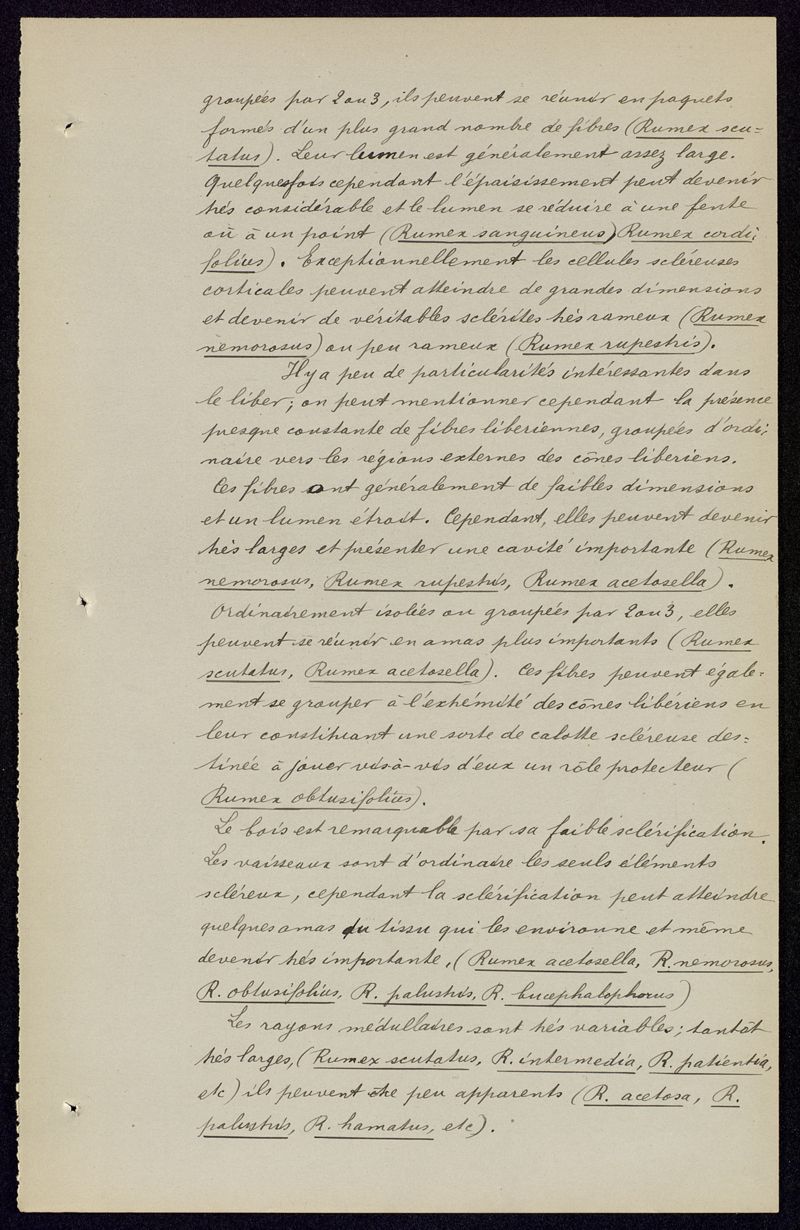 groupées par 2 ou 3, ils peuvent se réunir en paquets
formés d'un plus grand nombre de fibres (Rumex scu=
tatus). Leur lumen est généralement assez large.
Quelquesfois cependant l'épaisissement peut devenir
très considérable et le lumen se réduire à une fente
où à un point (Rumex sanguineus) Rumex cordi;
folius). Exceptionnellement les cellules scléreuses
corticales peuvent atteindre de grandes dimensions
et devenir de véritables sclérites très rameux (Rumex
nemorosus) ou peu rameux (Rumex rupestris).
Il y a peu de particularités intéressantes dans
le liber; on peut mentionner cependant la présence
presque constante de fibres liberiennes, groupées d'ordi;
naire vers les régions externes des cônes liberiens.
Ces fibres ont généralement de faibles dimensions
et un lumen étroit. Cependant, elles peuvent devenir
très larges et présenter une cavité importante (Rumex
nemorosus, Rumex rupestris, Rumex acetosella).
Ordinairement isolées ou groupées par 2 ou 3, elles
peuvent se réunir en amas plus importants (Rumex
scutatus, Rumex acetosella). Ces fibres peuvent égale=
ment se grouper à l'extrémité des cônes libériens en
leur constituant une sorte de calotte scléreuse des=
tinée à jouer vis-à-vis d'eux un rôle protecteur (
Rumex obtusifolius).
Le bois est remarquable par sa faible sclérification.
Les vaisseaux sont d'ordinaire les seuls éléments
scléreux, cependant la sclérification peut atteindre
quelques amas du tissu qui les environne et même
devenir très importante, (Rumex acetosella, R. nemorosus,
R. obtusifolius, R. palustris, R. bucephalophorus)
Les rayons médullaires sont très variables; tantôt
très larges, (Rumex scutatus, R. intermedia, R. patientia,
etc) ils peuvent être peu apparents (R. acetosa, R.
palustris, R. hamatus, etc).